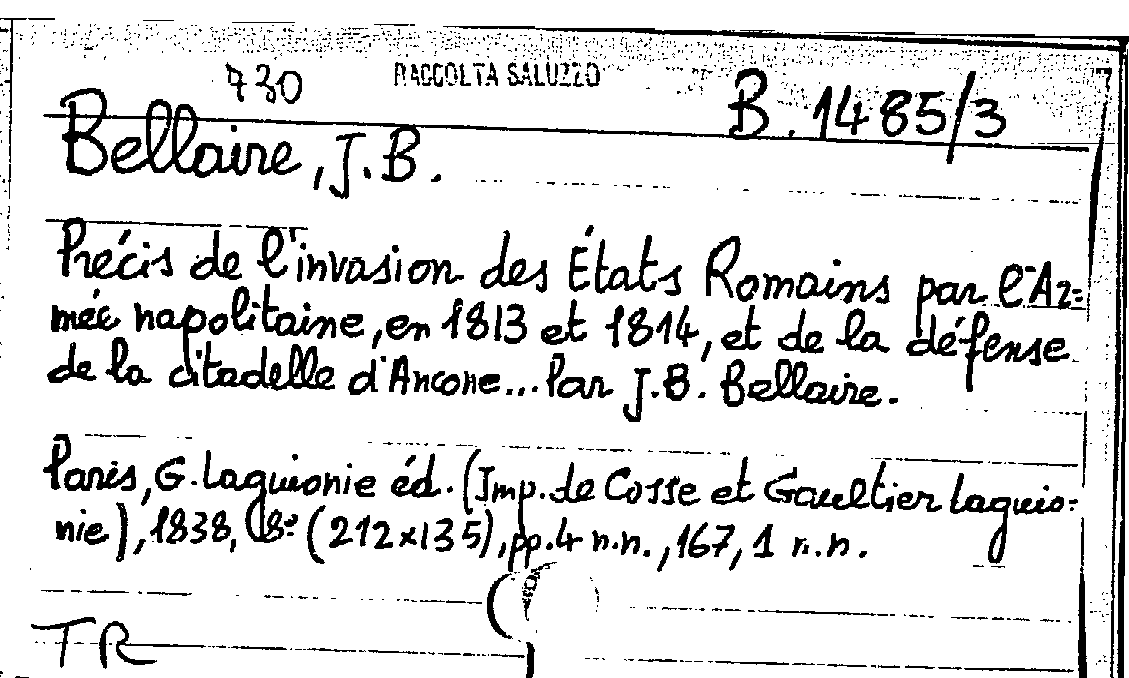 730 RACCOLTA SALUZZO B. 1485/3
Bellaire, J.B.
Précis de l'invasion des États Romains par l'Ar=
mée napolitaine, en 1813 et 1814, et de la défense
de la citadelle d'Ancone... Par J.B. Bellaire.
Paris, G. Laguionie éd. (Imp. de Cosse et Gaultier Laguio=
nie), 1838, 8º (212x135), pp. 4 n.n., 167, 1 n.n.
TR